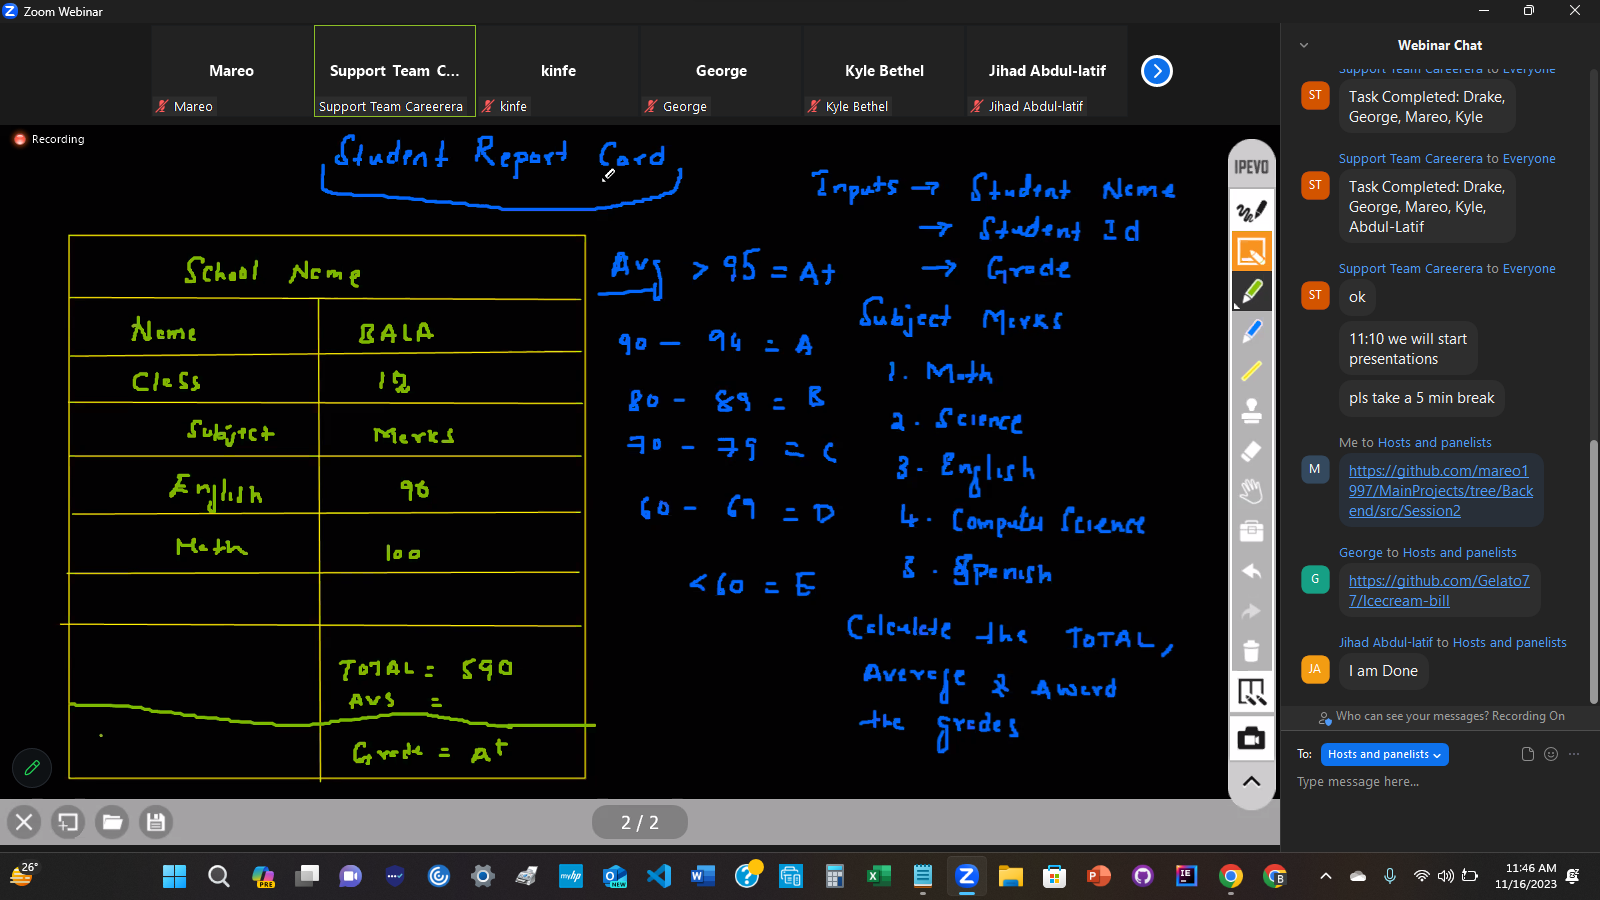 Zoom Webinar
Mareo
Support Team C...
kinfe
George
Kyle Bethel
Jihad Abdul-latif
Mareo
Support Team Careerera
kinfe
George
Kyle Bethel
Jihad Abdul-latif
Recording
Student Report Card
School Name
Name BALA
Class 12
Subject Marks
English 98
Math 100
TOTAL = 590
AVG =
Grade = A+
Avg > 95 = A+
90 - 94 = A
80 - 89 = B
70 - 79 = C
60 - 69 = D
< 60 = E
Inputs → Student Name
→ Student Id
→ Grade
Subject Marks
1. Math
2. Science
3. English
4. Computer Science
5. Spanish
Calculate the TOTAL,
Average & Award
the grades
IPEVO
2 / 2
Webinar Chat
Support Team Careerera to Everyone
ST
Task Completed: Drake,
George, Mareo, Kyle
Support Team Careerera to Everyone
ST
Task Completed: Drake,
George, Mareo, Kyle,
Abdul-Latif
Support Team Careerera to Everyone
ST
ok
11:10 we will start
presentations
pls take a 5 min break
Me to Hosts and panelists
M
https://github.com/mareo1
997/MainProjects/tree/Back
end/src/Session2
George to Hosts and panelists
G
https://github.com/Gelato7
7/Icecream-bill
Jihad Abdul-latif to Hosts and panelists
JA
I am Done
Who can see your messages? Recording On
To: Hosts and panelists
Type message here...
26°
PRE
myhp
NEW
11:46 AM
11/16/2023